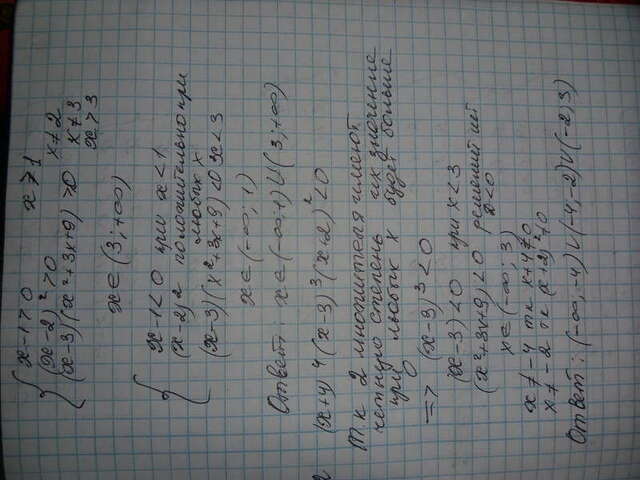 x-1>0 x>1
(x-2)²>0 x≠2
(x-3)(x²+3x+9)>0 x≠3
x>3
x∈(3;+∞)
x-1<0 при x<1
(x-2)² положительно при
любых x
(x-3)(x²+3x+9)<0 x<3
x∈(-∞;1)
Ответ: x∈(-∞;1)∪(3;+∞)
2 (x+4)⁴(x-3)³(x+2)²<0
Т к 2 множителя имеют
четную степень их значение
при любых x будет больше
0
=> (x-3)³<0
(x-3)<0 при x<3
(x²+3x+9)<0 решений нет
D<0
x∈(-∞;3)
x≠-4 тк x+4≠0
x≠-2 тк (x+2)²≠0
Ответ: (-∞,-4)∪(-4,-2)∪(-2,3)